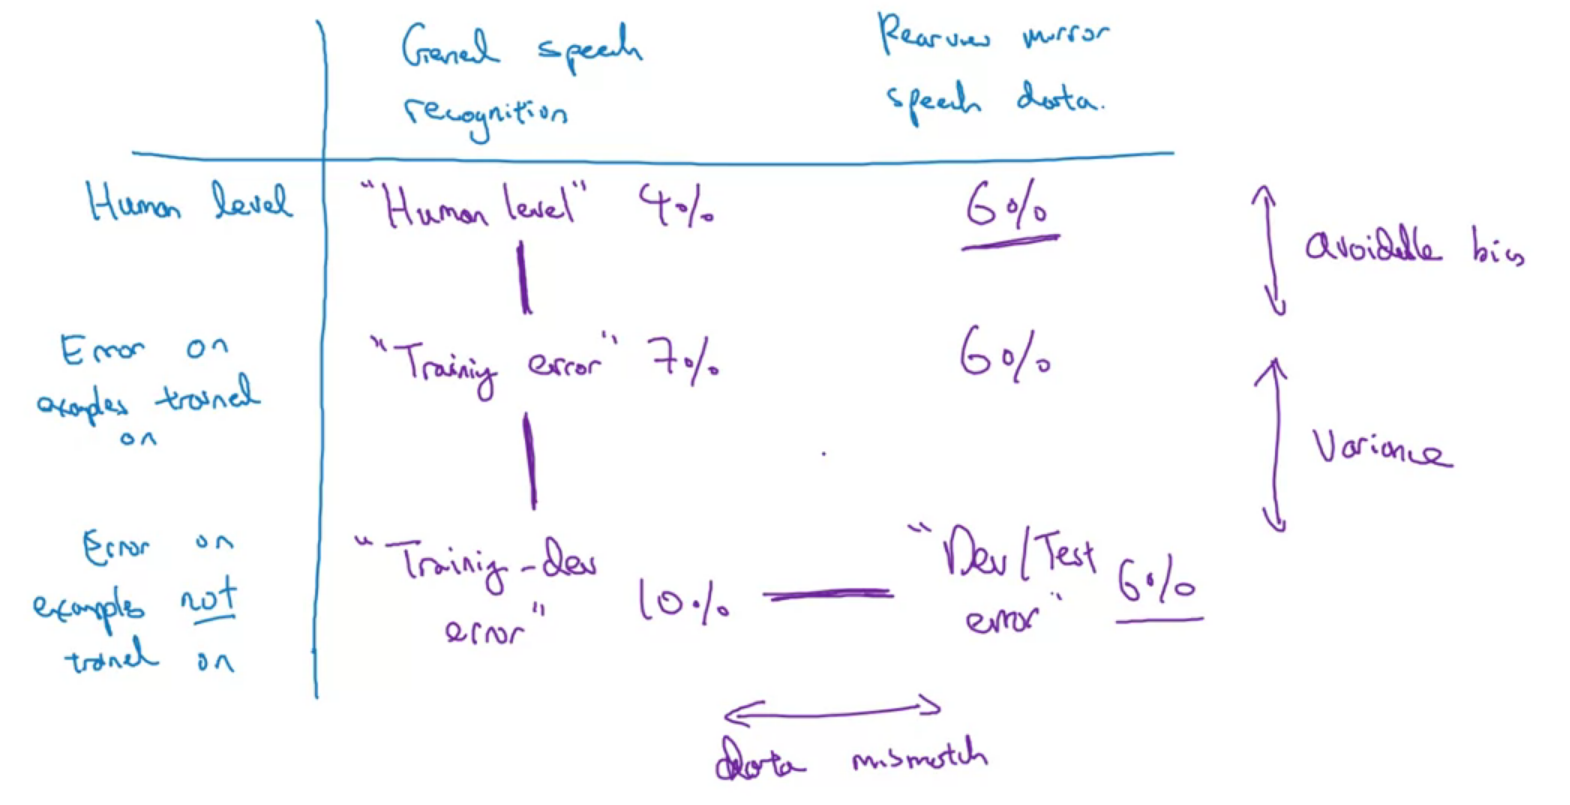 General speech
recognition
Rearview mirror
speech data.
Human level
"Human level" 4%
6%
avoidable bias
Error on
examples trained
on
"Training error" 7%
6%
Variance
Error on
examples not
trained on
"Training-dev
error"
10%
"Dev/Test
error"
6%
data mismatch